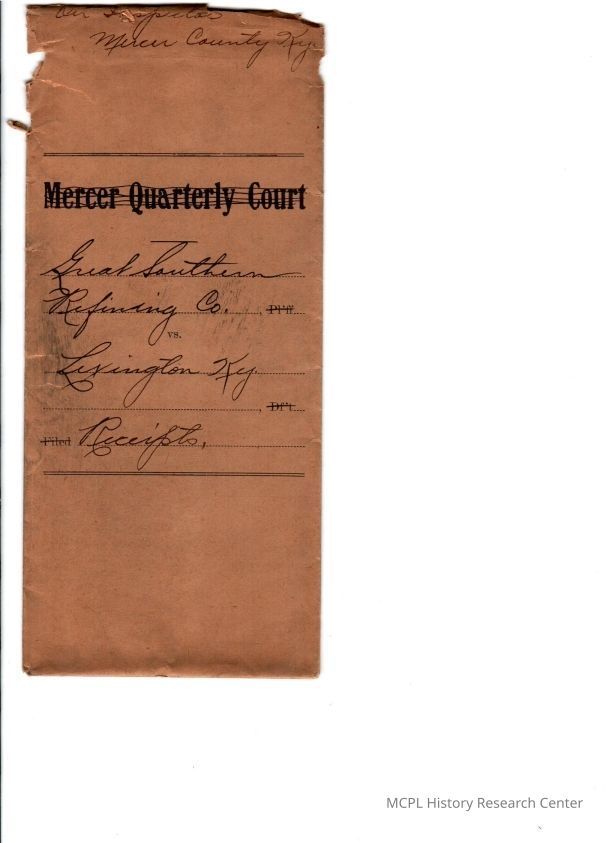 Oil Inspector
Mercer County Ky.
Mercer Quarterly Court
Great Southern
Refining Co. , Pl'ff
vs.
Lexington Ky.
, Df't.
Filed Receipts,
MCPL History Research Center